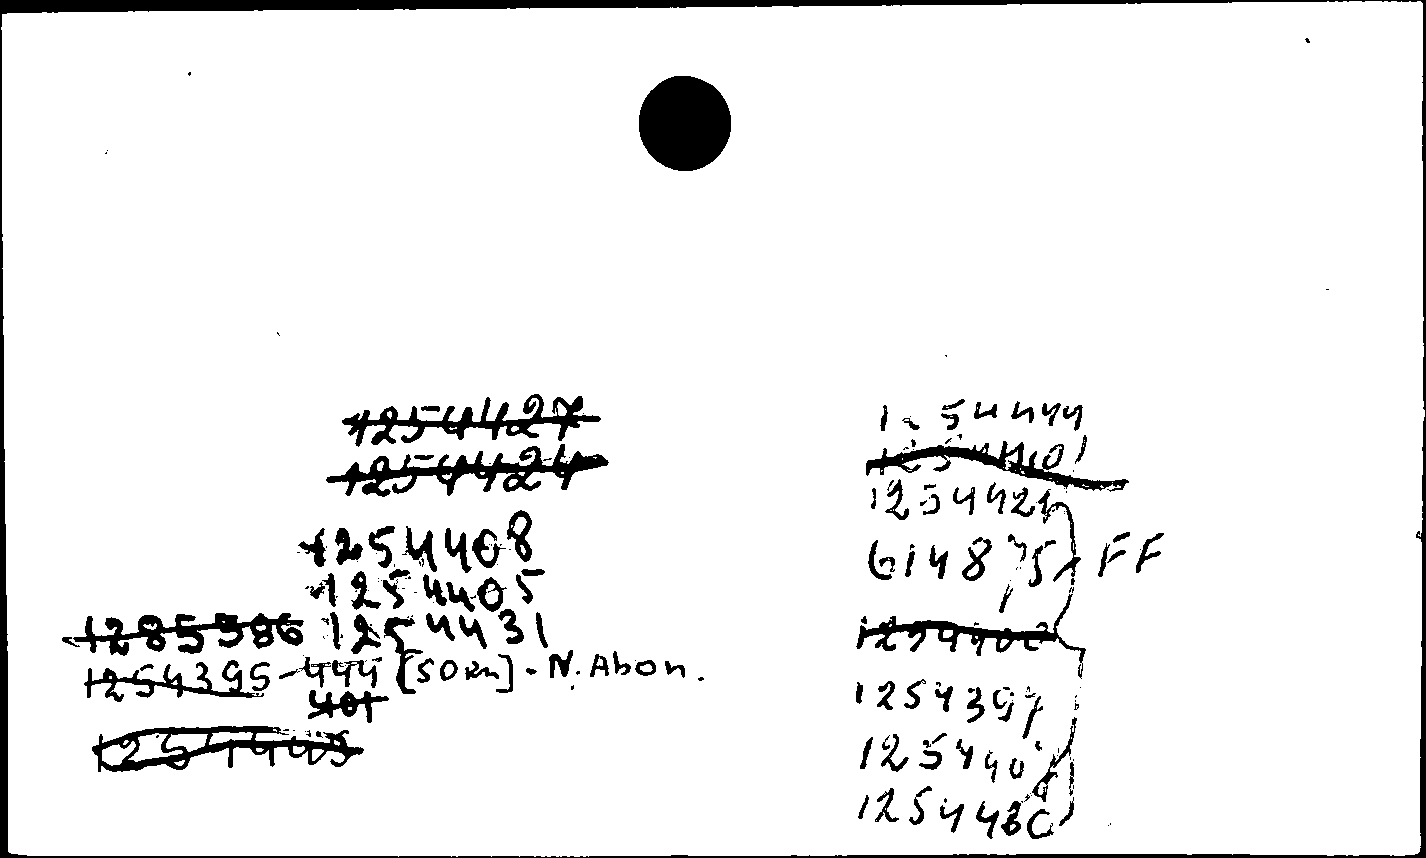 1254427
1254424
1254408
1254405
1285586 1254431
1254395-444 [50 kn] - N. Abon.
401
1254445
1254444
1254401
1254421
614875 - FF
1254397
1254430